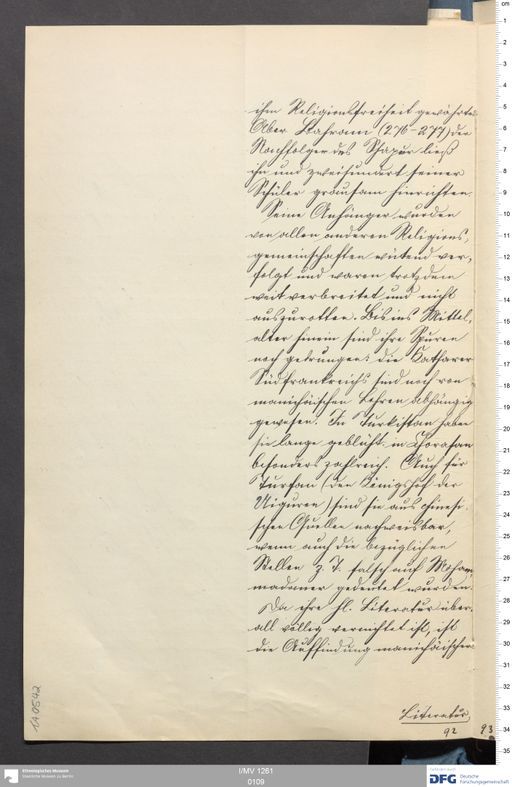 ihm Religionsfreiheit gewährte.
Aber Bahram (276-277) der
Nachfolger des Schapur ließ
ihn und zweihundert seiner
Schüler grausam hinrichten.
Seine Anhänger wurden
von allen anderen Religions-
gemeinschaften wütend ver-
folgt und waren trotzdem
weit verbreitet und nicht
auszurotten. Bis ins Mittel-
alter hinein sind ihre Spuren
noch gedrungen: die Katharer
Südfrankreichs sind noch von
manichäischen Lehren abhängig
gewesen. In Turkistan haben
sie lange geblüht in Chorasan
besonders zahlreich. Auch für
Turfan (den Königshof der
Uiguren) sind sie aus chinesi-
schen Quellen nachweisbar,
wenn auch die bezüglichen
Stellen z. T. falsch auf Moham-
medaner gedeutet wurden.
Da ihre hl. Literatur über-
all völlig vernichtet ist, ist
die Auffindung manichäischer
Literatur
92
93
1A0542
cm
1
2
3
4
5
6
7
8
9
10
11
12
13
14
15
16
17
18
19
20
21
22
23
24
25
26
27
28
29
30
31
32
33
34
35
Ethnologisches Museum
Staatliche Museen zu Berlin
I/MV 1261
0109
DFG
Deutsche
Forschungsgemeinschaft